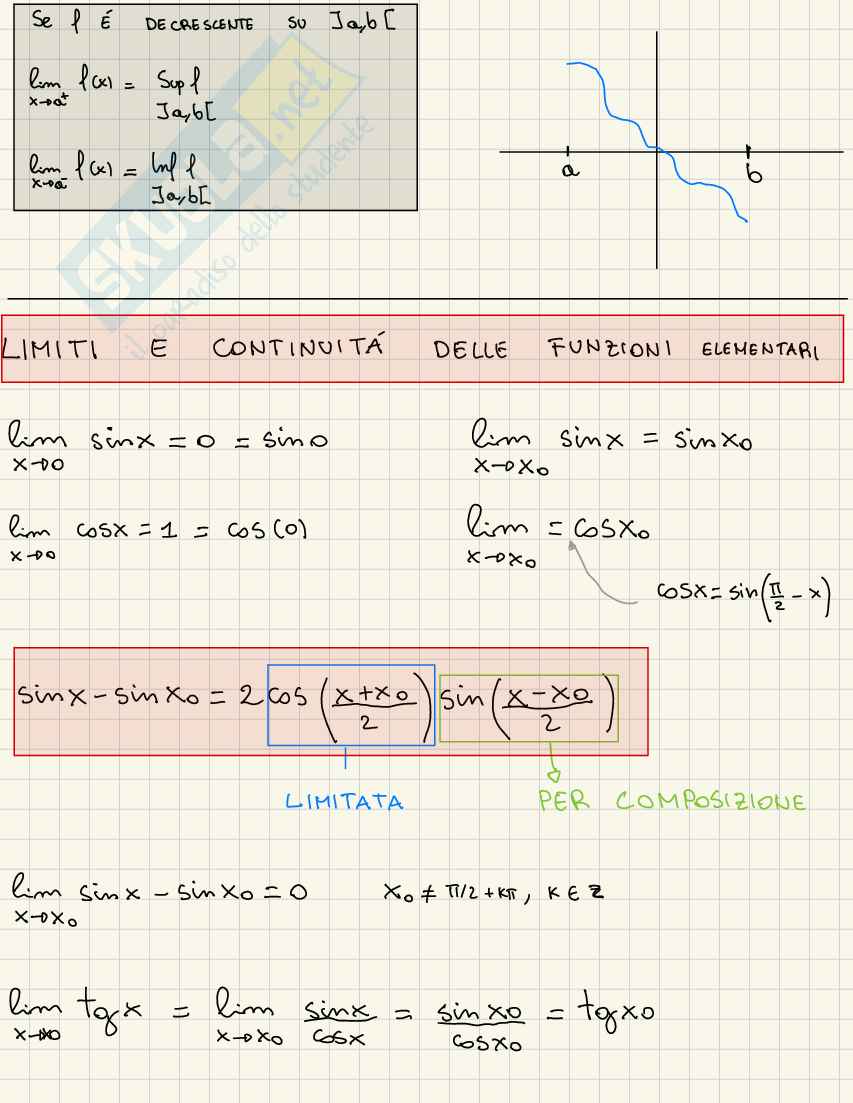 Se f É DECRESCENTE SU ]a,b[
lim x→a⁺ f(x) = Sup f ]a,b[
lim x→a⁻ f(x) = Inf f ]a,b[
a b
SKUOLA.net
LIMITI E CONTINUITÁ DELLE FUNZIONI ELEMENTARI
lim x→0 sinx = 0 = sin0
lim x→x₀ sinx = sinx₀
lim x→0 cosx = 1 = cos(0)
lim x→x₀ = cosx₀
cosx = sin(π/2 - x)
sinx - sinx₀ = 2cos((x+x₀)/2) sin((x-x₀)/2)
LIMITATA
PER COMPOSIZIONE
lim x→x₀ sinx - sinx₀ = 0 x₀ ≠ π/2 + kπ, k ∈ Z
lim x→x₀ tgx = lim x→x₀ sinx/cosx = sinx₀/cosx₀ = tgx₀